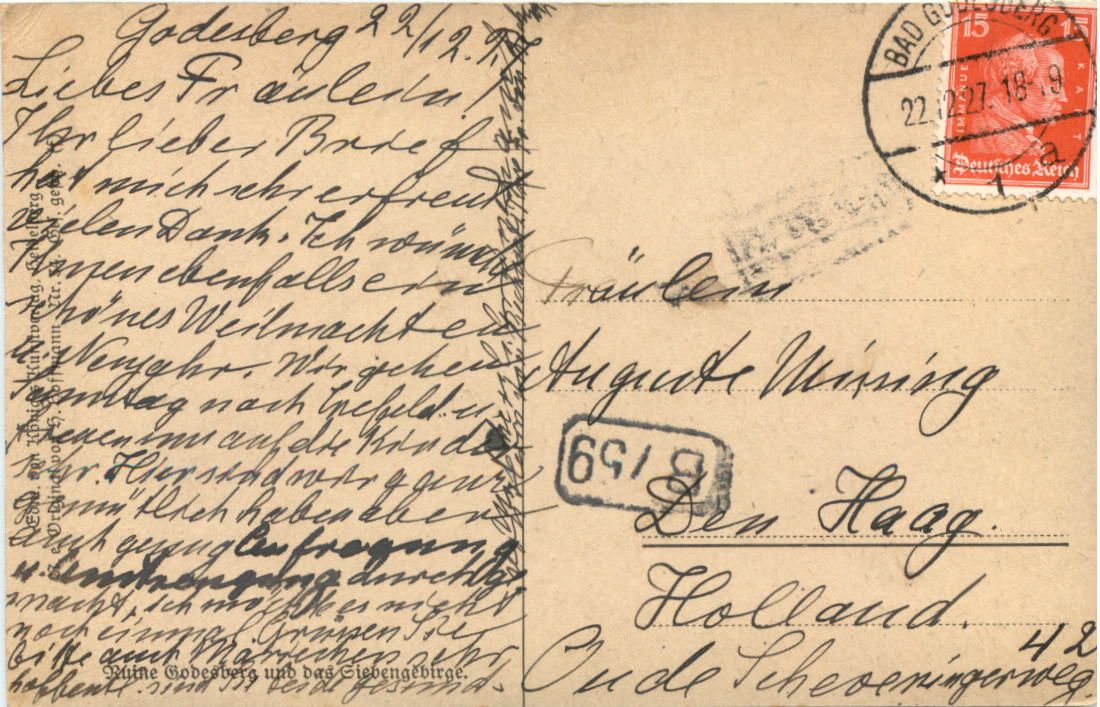 Godesberg 22/12.27
Liebes Fräulein!
Ihr lieber Brief
hat mich sehr erfreut
vielen Dank. Ich wünsche
Ihnen ebenfalls ein
schönes Weihnachten
u. Neujahr. Wir gehen
Samstag nach Crefeld u.
freuen uns auf die Kinder
sehr. Hier sind wir ganz
gemütlich haben aber
auch genug Aufregung
u. Anstrengung durchge
macht, ich möchte es nicht
noch einmal. Grüssen Sie
bitte auch Mariechen sehr
hoffentl. sind Sie beide gesund.
Ruine Godesberg und das Siebengebirge.
Edm. von König, Kunstverlag, Heidelberg
Original von H. Hoffmann Nr. Ges. gesch.
BAD GODESBERG
22.12.27. 18-19
* 1 a
15 15
IMMANUEL KANT
Deutsches Reich
Fräulein
Auguste Mining
B 759
Den Haag.
Holland.
42
Oude Scheveningerweg.